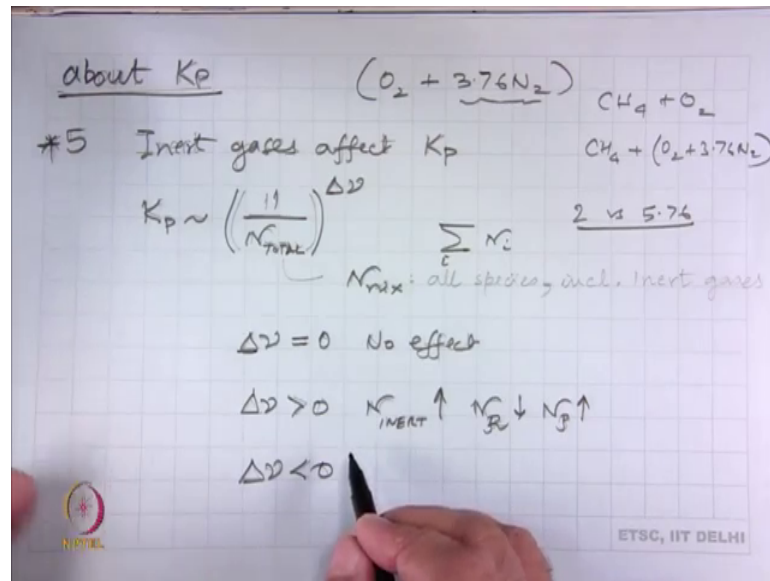 about Kp
(O₂ + 3.76N₂)
CH₄ + O₂
*5 Inert gases affect Kp
CH₄ + (O₂+3.76N₂)
Kp ~ (11/N_TOTAL)^Δν
∑_i N_i
2 vs 5.76
N_mix: all species, incl. Inert gases
Δν = 0 No effect
Δν > 0 N_INERT ↑ N_R ↓ N_P ↑
Δν < 0
NPTEL
ETSC, IIT DELHI